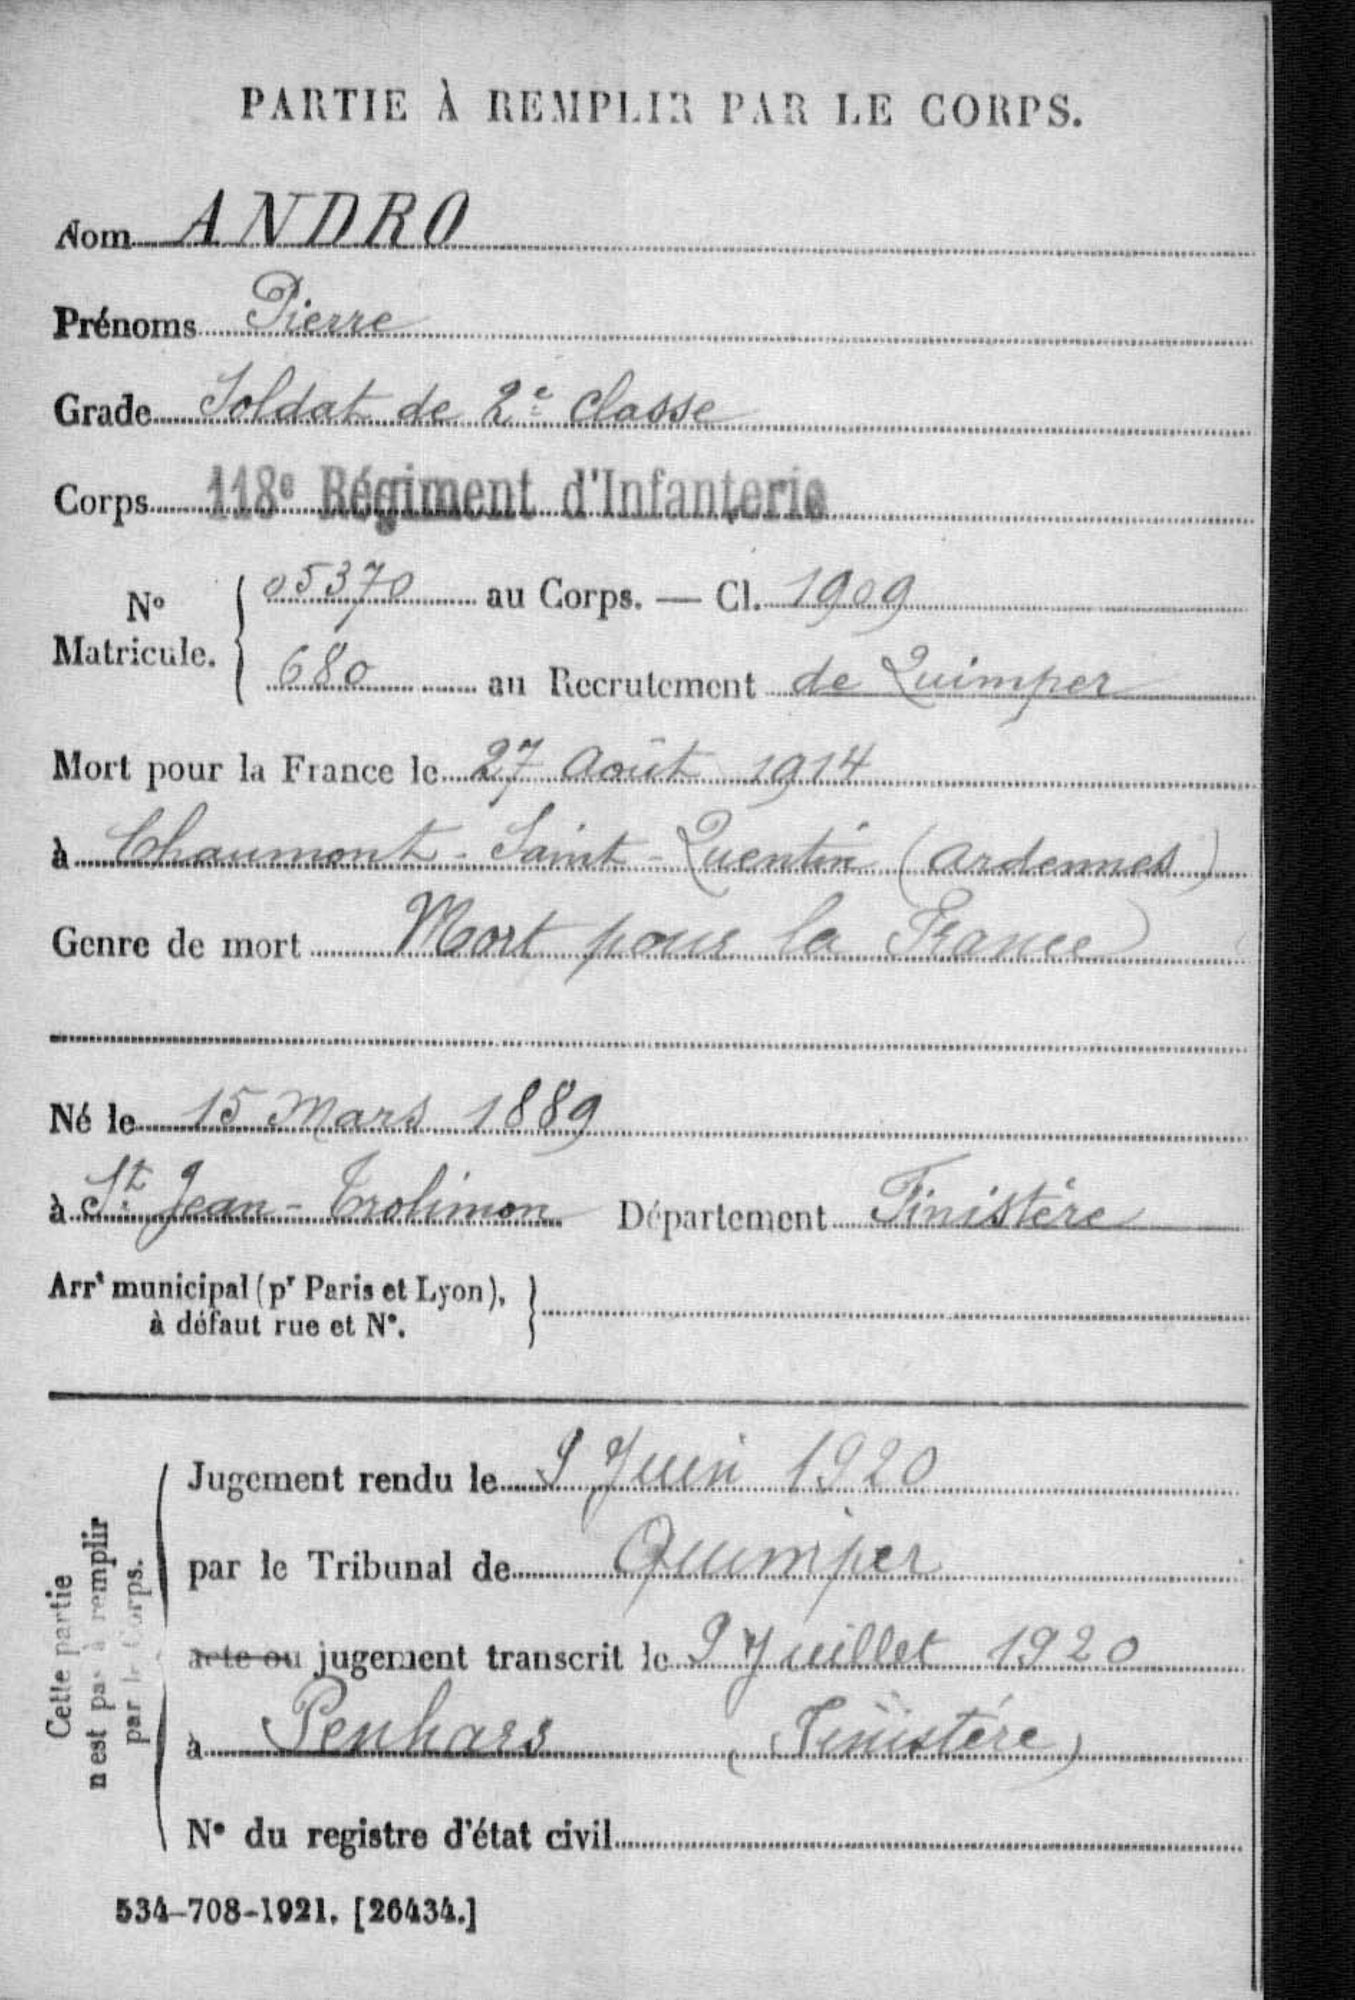 PARTIE À REMPLIR PAR LE CORPS.
Nom ANDRO
Prénoms Pierre
Grade Soldat de 2e classe
Corps 118e Régiment d'Infanterie
No Matricule. { 05370 au Corps. — Cl. 1909
680 au Recrutement de Quimper
Mort pour la France le 27 Août 1914
à Chaumont-Saint-Quentin (Ardennes)
Genre de mort Mort pour la France
Né le 15 Mars 1889
à St Jean-Trolimon Département Finistère
Arrt municipal (pr Paris et Lyon), }
à défaut rue et N°.
Cette partie
n'est pas à remplir
par le Corps.
Jugement rendu le 9 Juin 1920
par le Tribunal de Quimper
acte ou jugement transcrit le 9 Juillet 1920
à Penhars (Finistère)
N° du registre d'état civil
534-708-1921. [26434.]